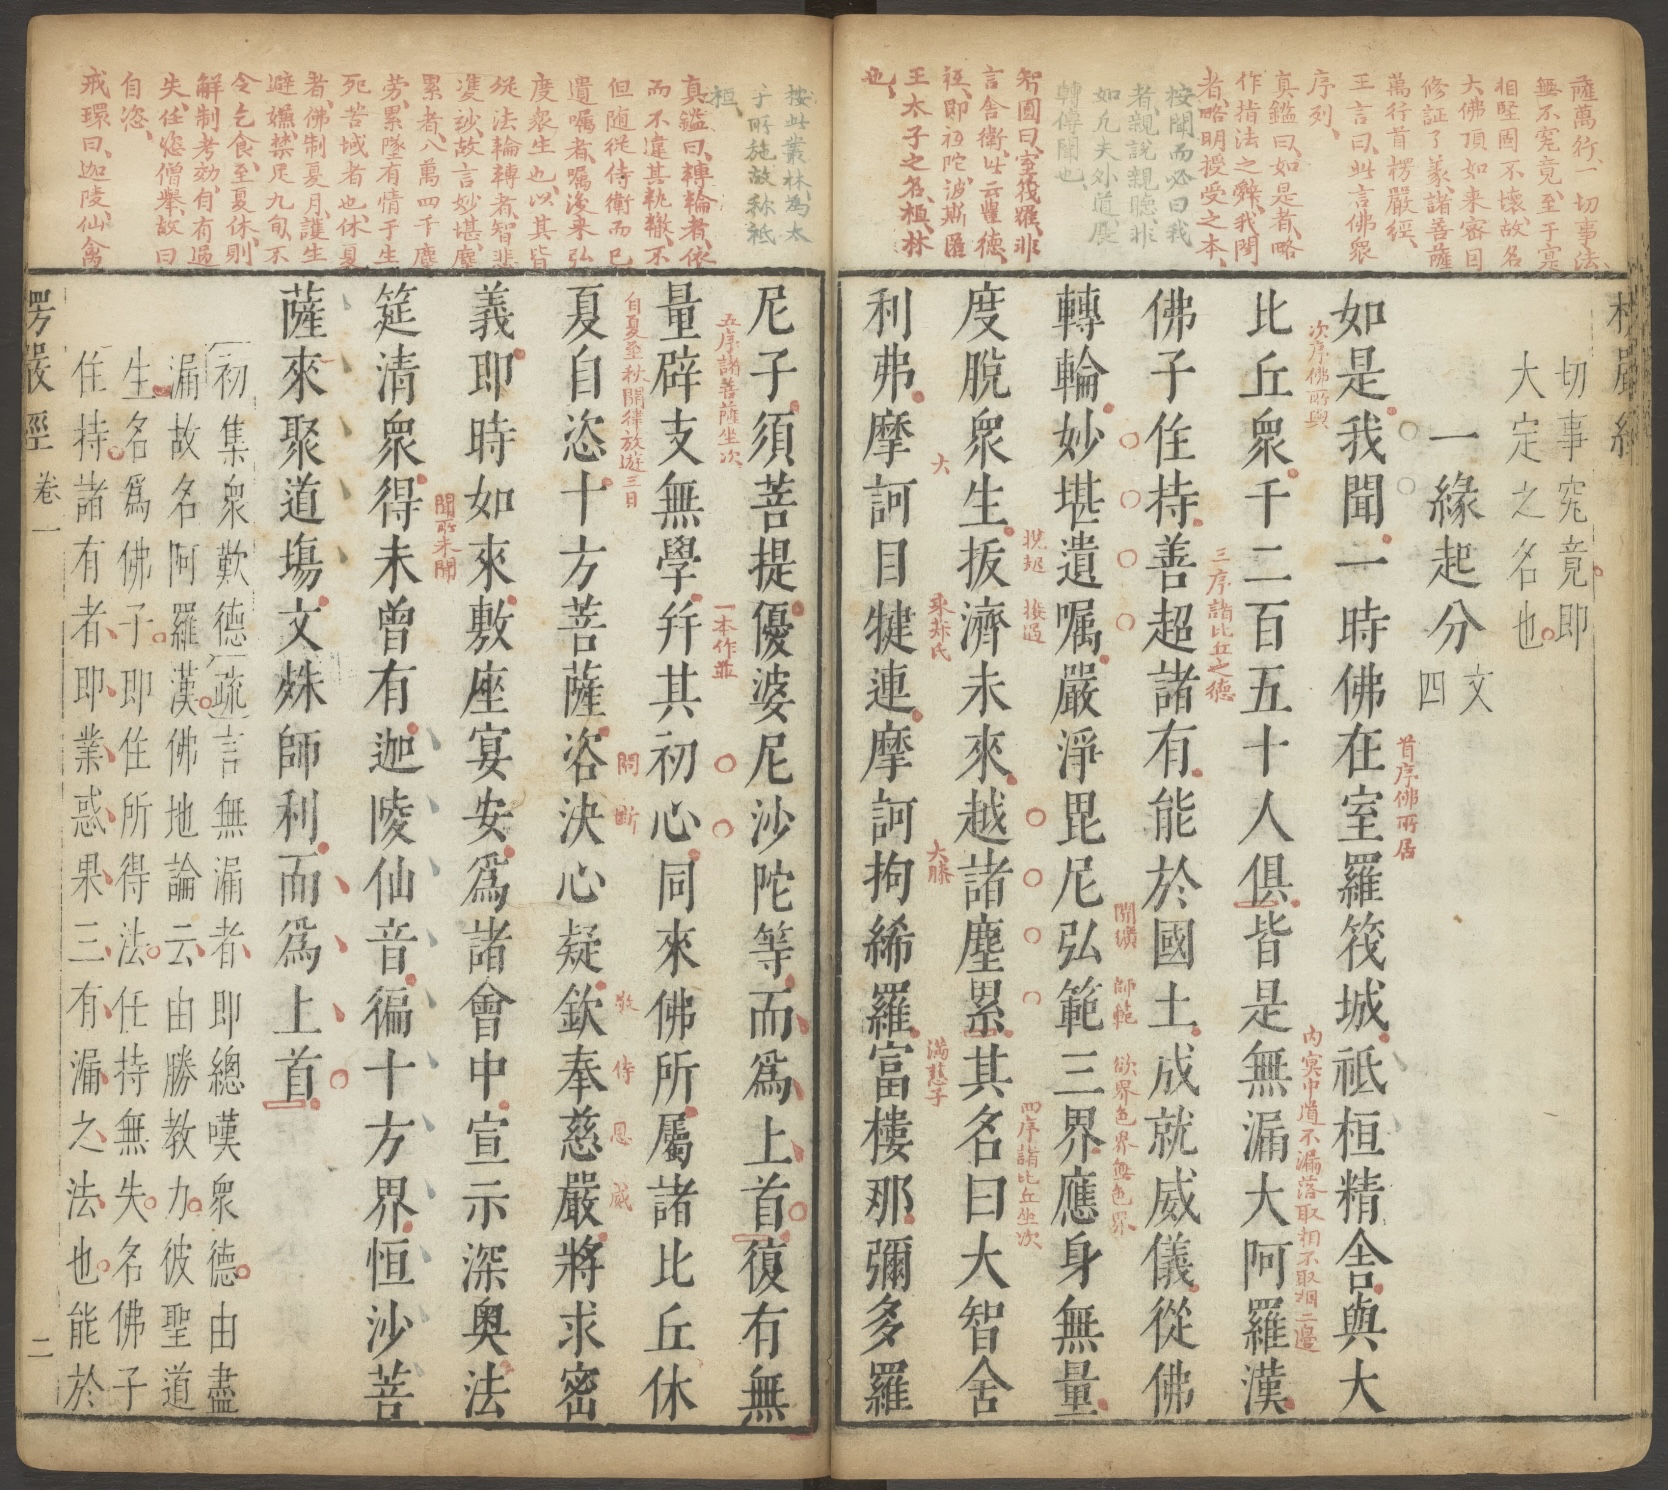 薩萬行、一切事法、
無不究竟、至于寔
相堅固不壞、故名
大佛頂如來密因
修証了義、諸菩薩
萬行首楞嚴經、
王言曰、此言佛衆
序列、
真鑑曰、如是者、略
作指法之辭、我聞
者、略明授受之本、
按聞而必曰我
者、親說親聽、非
如凡夫外道、展
轉傳聞也、
智圓曰、室筏羅、非
言舍衛、此云豐德、
祇、即祇陀、波斯匿
王太子之名、桓、林
也、
切事究竟即
大定之名也
一緣起分 文四
如是我聞一時佛在室羅筏城祇桓精舍與大
首序佛所居
次序佛所與
比丘衆千二百五十人俱皆是無漏大阿羅漢
內冥中道不漏落取相不取相二邊
佛子住持善超諸有能於國土成就威儀從佛
三序諸比丘之德
轉輪妙堪遺囑嚴淨毘尼弘範三界應身無量
開擴 師範 欲界色界無色界
度脫衆生拔濟未來越諸塵累其名曰大智舍
拔超 接過 四序諸比丘坐次
利弗摩訶目犍連摩訶拘絺羅富樓那彌多羅
大 采菽氏 大膝 滿慈子
按此叢林、為太
子所施、故稱祇
桓、
真鑑曰、轉輪者、依
而不違其軌轍、不
但隨從侍衛而已
遺囑者、囑後來弘
度衆生也、以其皆
從法輪轉者、智悲
雙妙、故言妙堪、塵
累者、八萬四千塵
勞、累墜有情于生
死苦域者也、休夏
者、佛制夏月、護生
避嫌、禁足九旬、不
令乞食、至夏休、則
解制考効、自有過
失、任恣僧舉、故曰
自恣、
戒環曰、迦陵仙禽
尼子須菩提優婆尼沙陀等而為上首復有無
五序諸菩薩坐次 一本作並
量辟支無學幷其初心同來佛所屬諸比丘休
自夏至秋開律放遊三日
夏自恣十方菩薩咨決心疑欽奉慈嚴將求密
問 斷 敬 侍 恩 威
義即時如來敷座宴安爲諸會中宣示深奧法
聞所未聞
筵清衆得未曾有迦陵仙音徧十方界恒沙菩
薩來聚道塲文殊師利而爲上首
初集衆歎德疏言無漏者即總嘆衆德由盡
漏故名阿羅漢佛地論云由勝教力彼聖道
生名爲佛子即住所得法任持無失名佛子
住持諸有者即業惑果三有漏之法也能於
楞嚴經 卷一 二